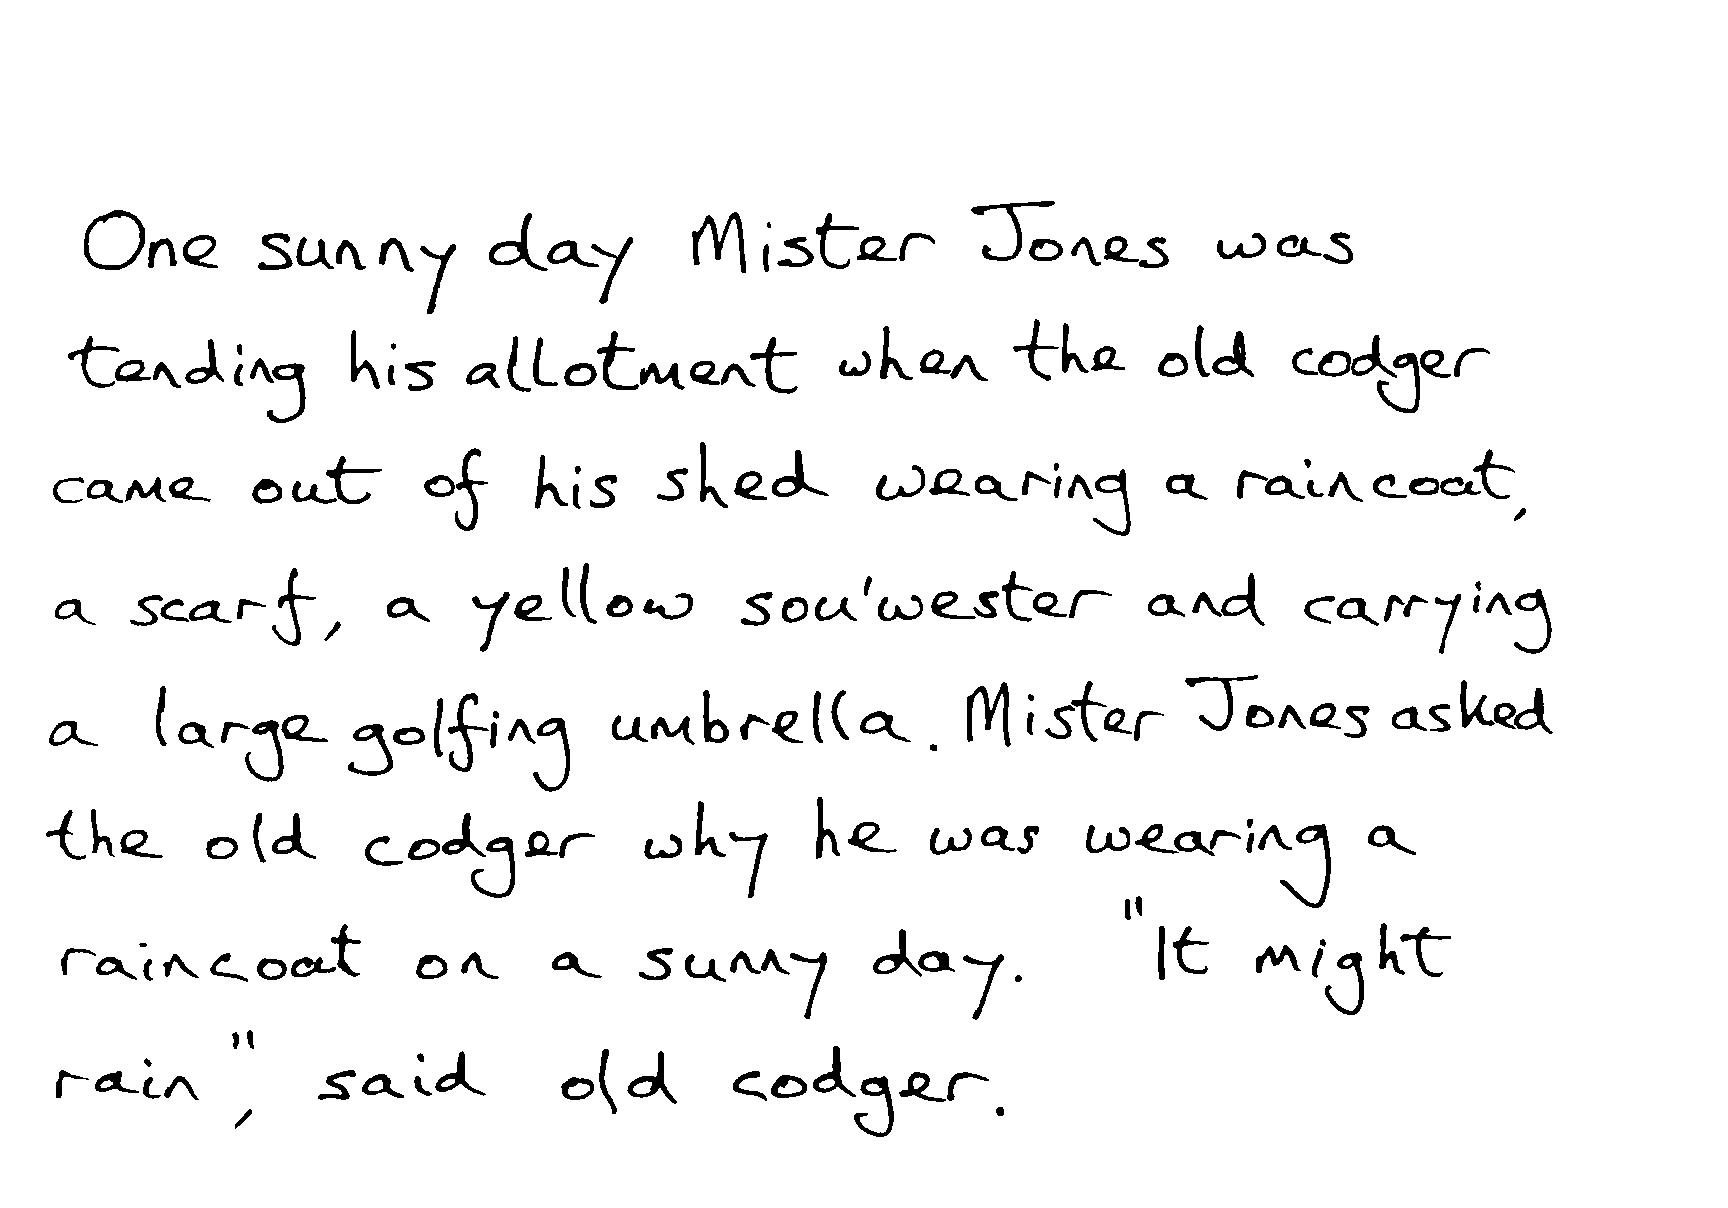 One sunny day Mister Jones was
tending his allotment when the old codger
came out of his shed wearing a raincoat,
a scarf, a yellow sou'wester and carrying
a large golfing umbrella. Mister Jones asked
the old codger why he was wearing a
raincoat on a sunny day. "It might
rain", said old codger.